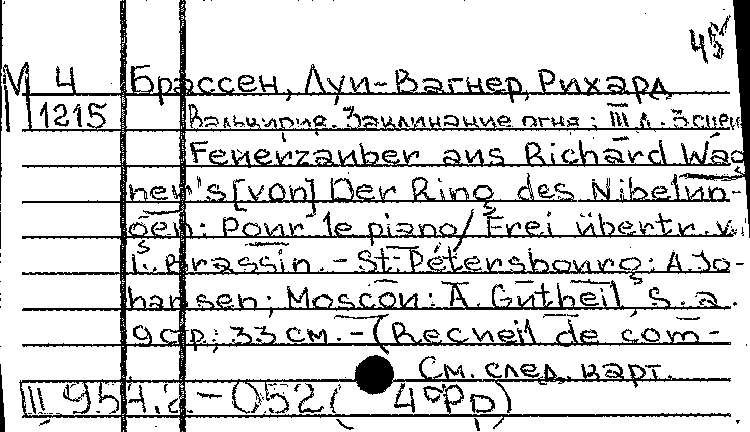 45
М 4 Брассен, Луи-Вагнер, Рихард
1215 Валькирия. Заклинание огня: III д. 3 сцен
Feuerzauber aus Richard Wag
ner's [von] Der Ring des Nibelun-
gen: Pour le piano/ Frei übertr. v.
L. Brassin. - St-Pétersbourg: A. Jo-
hansen; Moscou: A. Gutheil, s. a.
9 стр.; 33 см. - (Recueil de com-
См. след. карт.
III 954.2-052( 4°Рр)